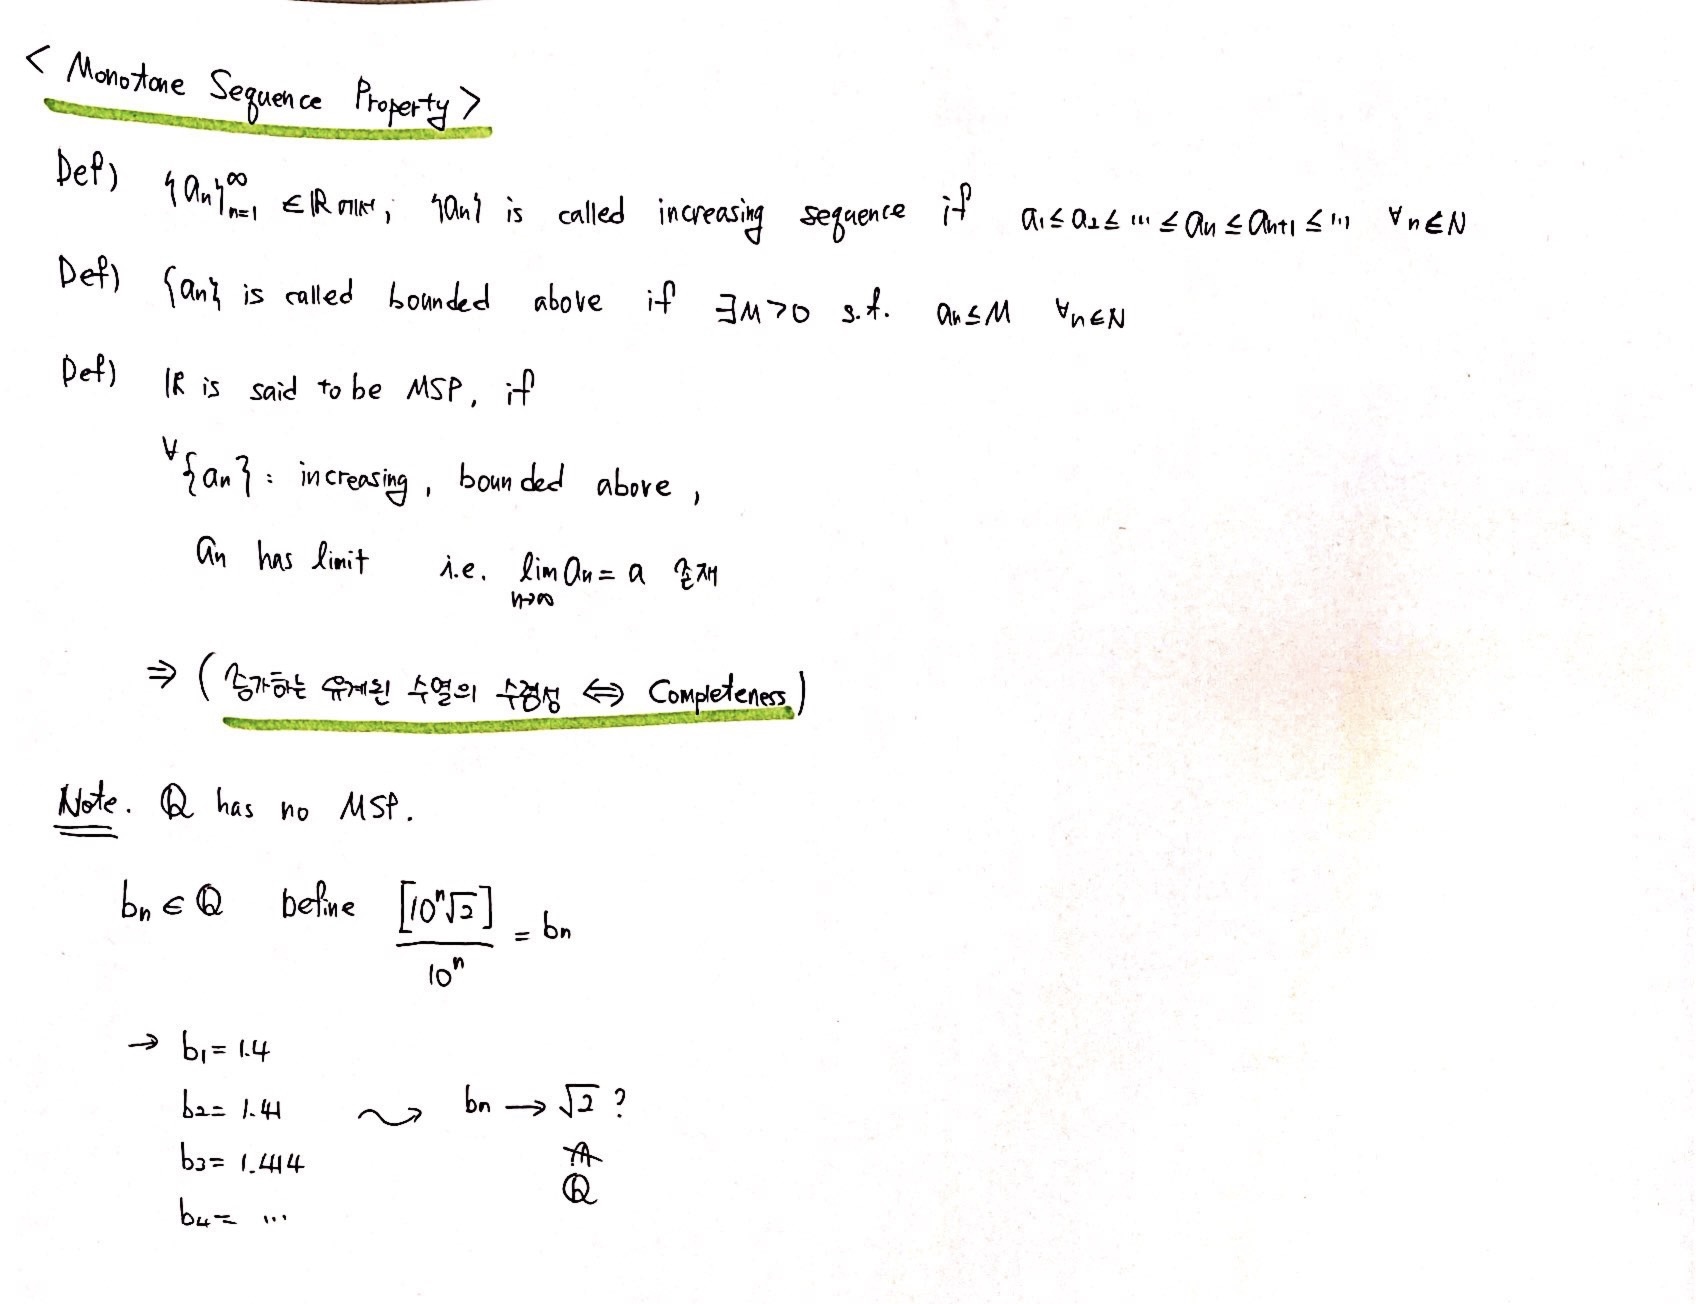 < Monotone Sequence Property >
Def) {an}∞n=1 ∈ ℝ에서, {an} is called increasing sequence if a1 ≤ a2 ≤ ... ≤ an ≤ an+1 ≤ ... ∀n∈N
Def) {an} is called bounded above if ∃M>0 s.t. an≤M ∀n∈N
Def) ℝ is said to be MSP, if
∀{an} : increasing, bounded above,
an has limit i.e. lim n→∞ an = a 존재
⇒ ( 증가하는 유계인 수열의 수렴성 ⇔ Completeness )
Note. ℚ has no MSP.
bn ∈ ℚ define [10ⁿ√2] / 10ⁿ = bn
→ b1 = 1.4
b2 = 1.41 ⇝ bn → √2 ?
b3 = 1.414 ∉
ℚ
b4 = ...